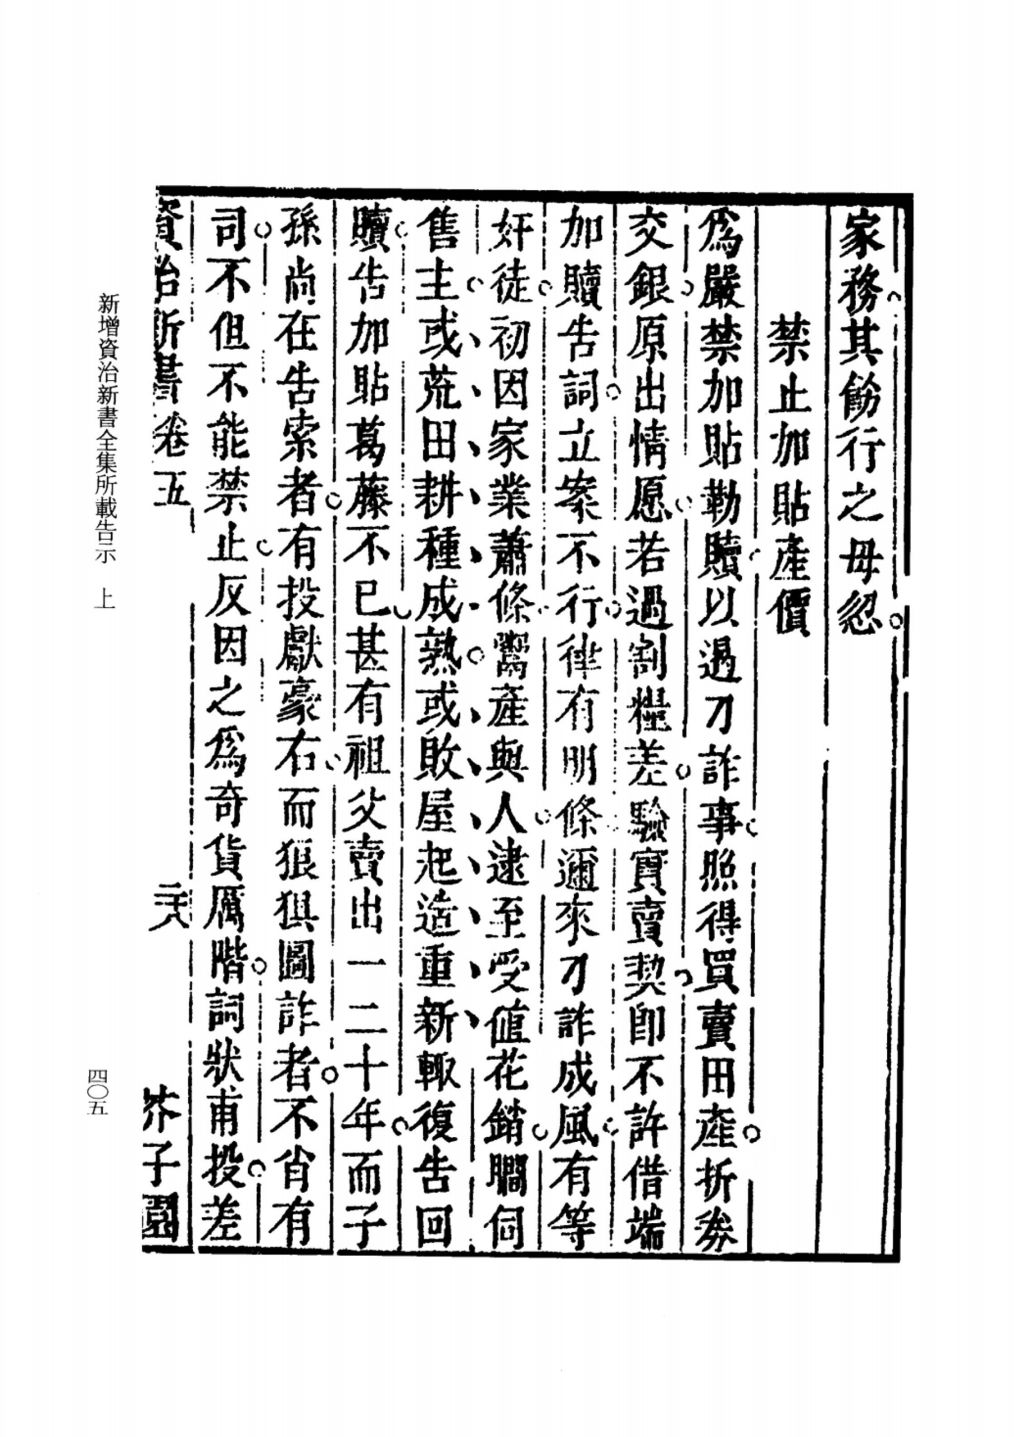 家務其飭行之毋忽
禁止加貼產價
爲嚴禁加貼勒贖以遏刀詐事照得買賣田產折券
交銀原出情愿若過割糧差驗實賣契即不許借端
加贖告詞立案不行律有明條邇來刀詐成風有等
奸徒初因家業蕭條鬻產與人逮至受値花銷瞷伺
售主或荒田耕種成熟或敗屋起造重新輙復告回
贖告加貼葛藤不已甚有祖父賣出一二十年而子
孫尚在告索者有投獻豪右而狠狽圖詐者不肖有
司不但不能禁止反因之爲奇貨厲階詞狀甫投差
資治新書卷五
二十八
芥子園
新增資治新書全集所載告示 上
四〇五